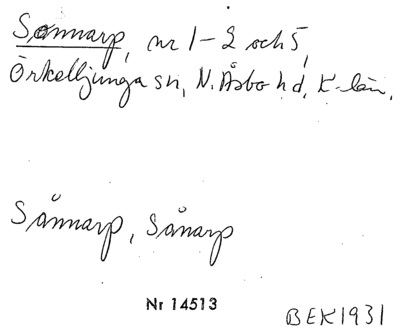 Sonnarp, nr 1-2 och 5,
Örkelljunga sn, N. Åsbo hd, K-län.
Sånnarp, Sånarp
Nr 14513
BEK 1931